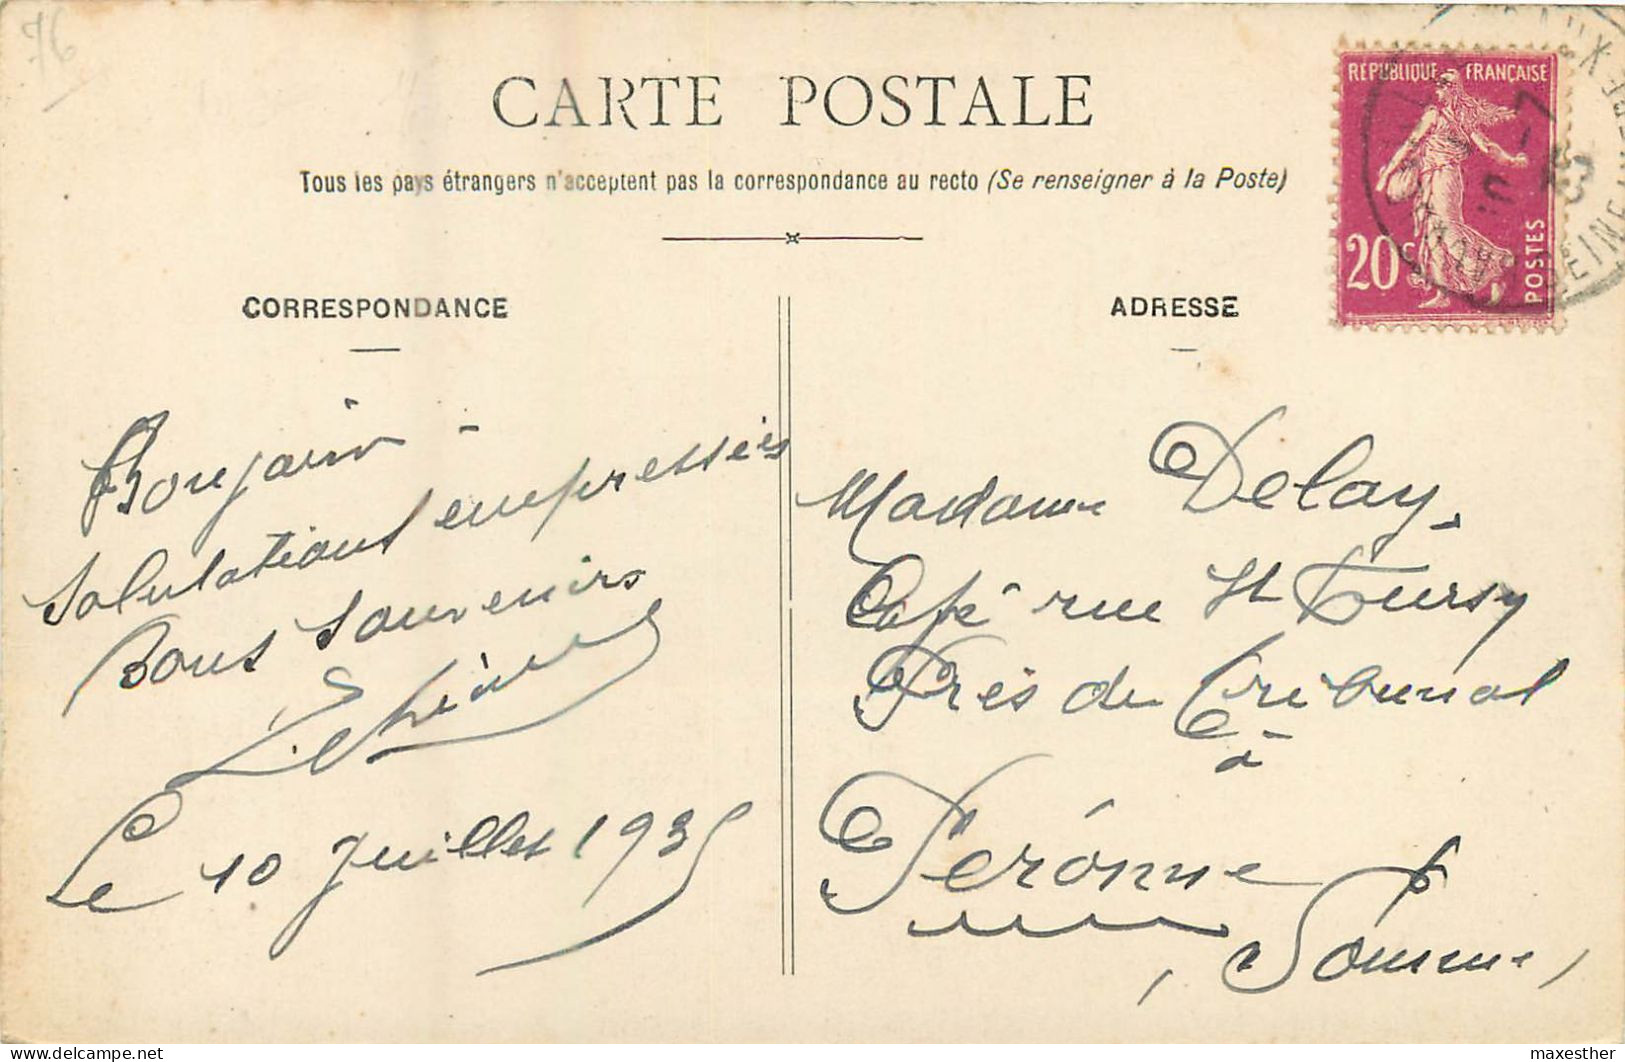 76
CARTE POSTALE
Tous les pays étrangers n'acceptent pas la correspondance au recto (Se renseigner à la Poste)
RÉPUBLIQUE FRANÇAISE
20c
POSTES
CORRESPONDANCE
Salutations empressées
Bons souvenirs
Le 10 Juillet 1935
ADRESSE
Madame Delay,
Café rue St Fursy
Près du Tribunal
à
Péronne
(Somme)
delcampe.net
maxesther